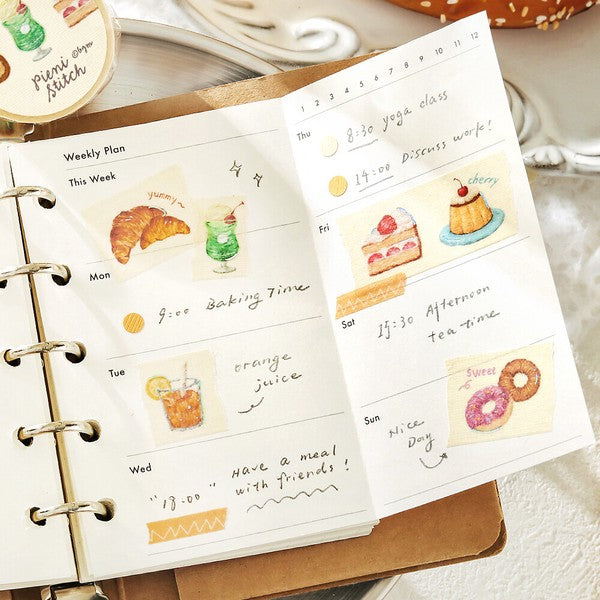 pieni
Stitch
©bgm
Weekly Plan
This Week
yummy
Mon
9:00 Baking Time
Tue
orange
juice
Wed
"18:00" Have a meal
with friends!
1 2 3 4 5 6 7 8 9 10 11 12
Thu
8:30 yoga class
14:00 Discuss work!
Fri
cherry
Sat
15:30 Afternoon
tea time
Sweet
Sun
Nice
Day